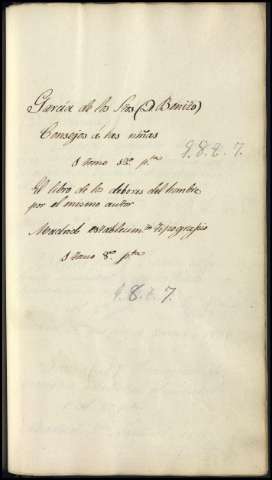 García de los Ríos (D. Benito)
Consejos á las niñas
1 tomo 8.º pta
9.8.2.7.
El libro de los deberes del hombre
por el mismo autor
Madrid establecim.to tipografico
1 tomo 8.º pta
9.8.2.7.